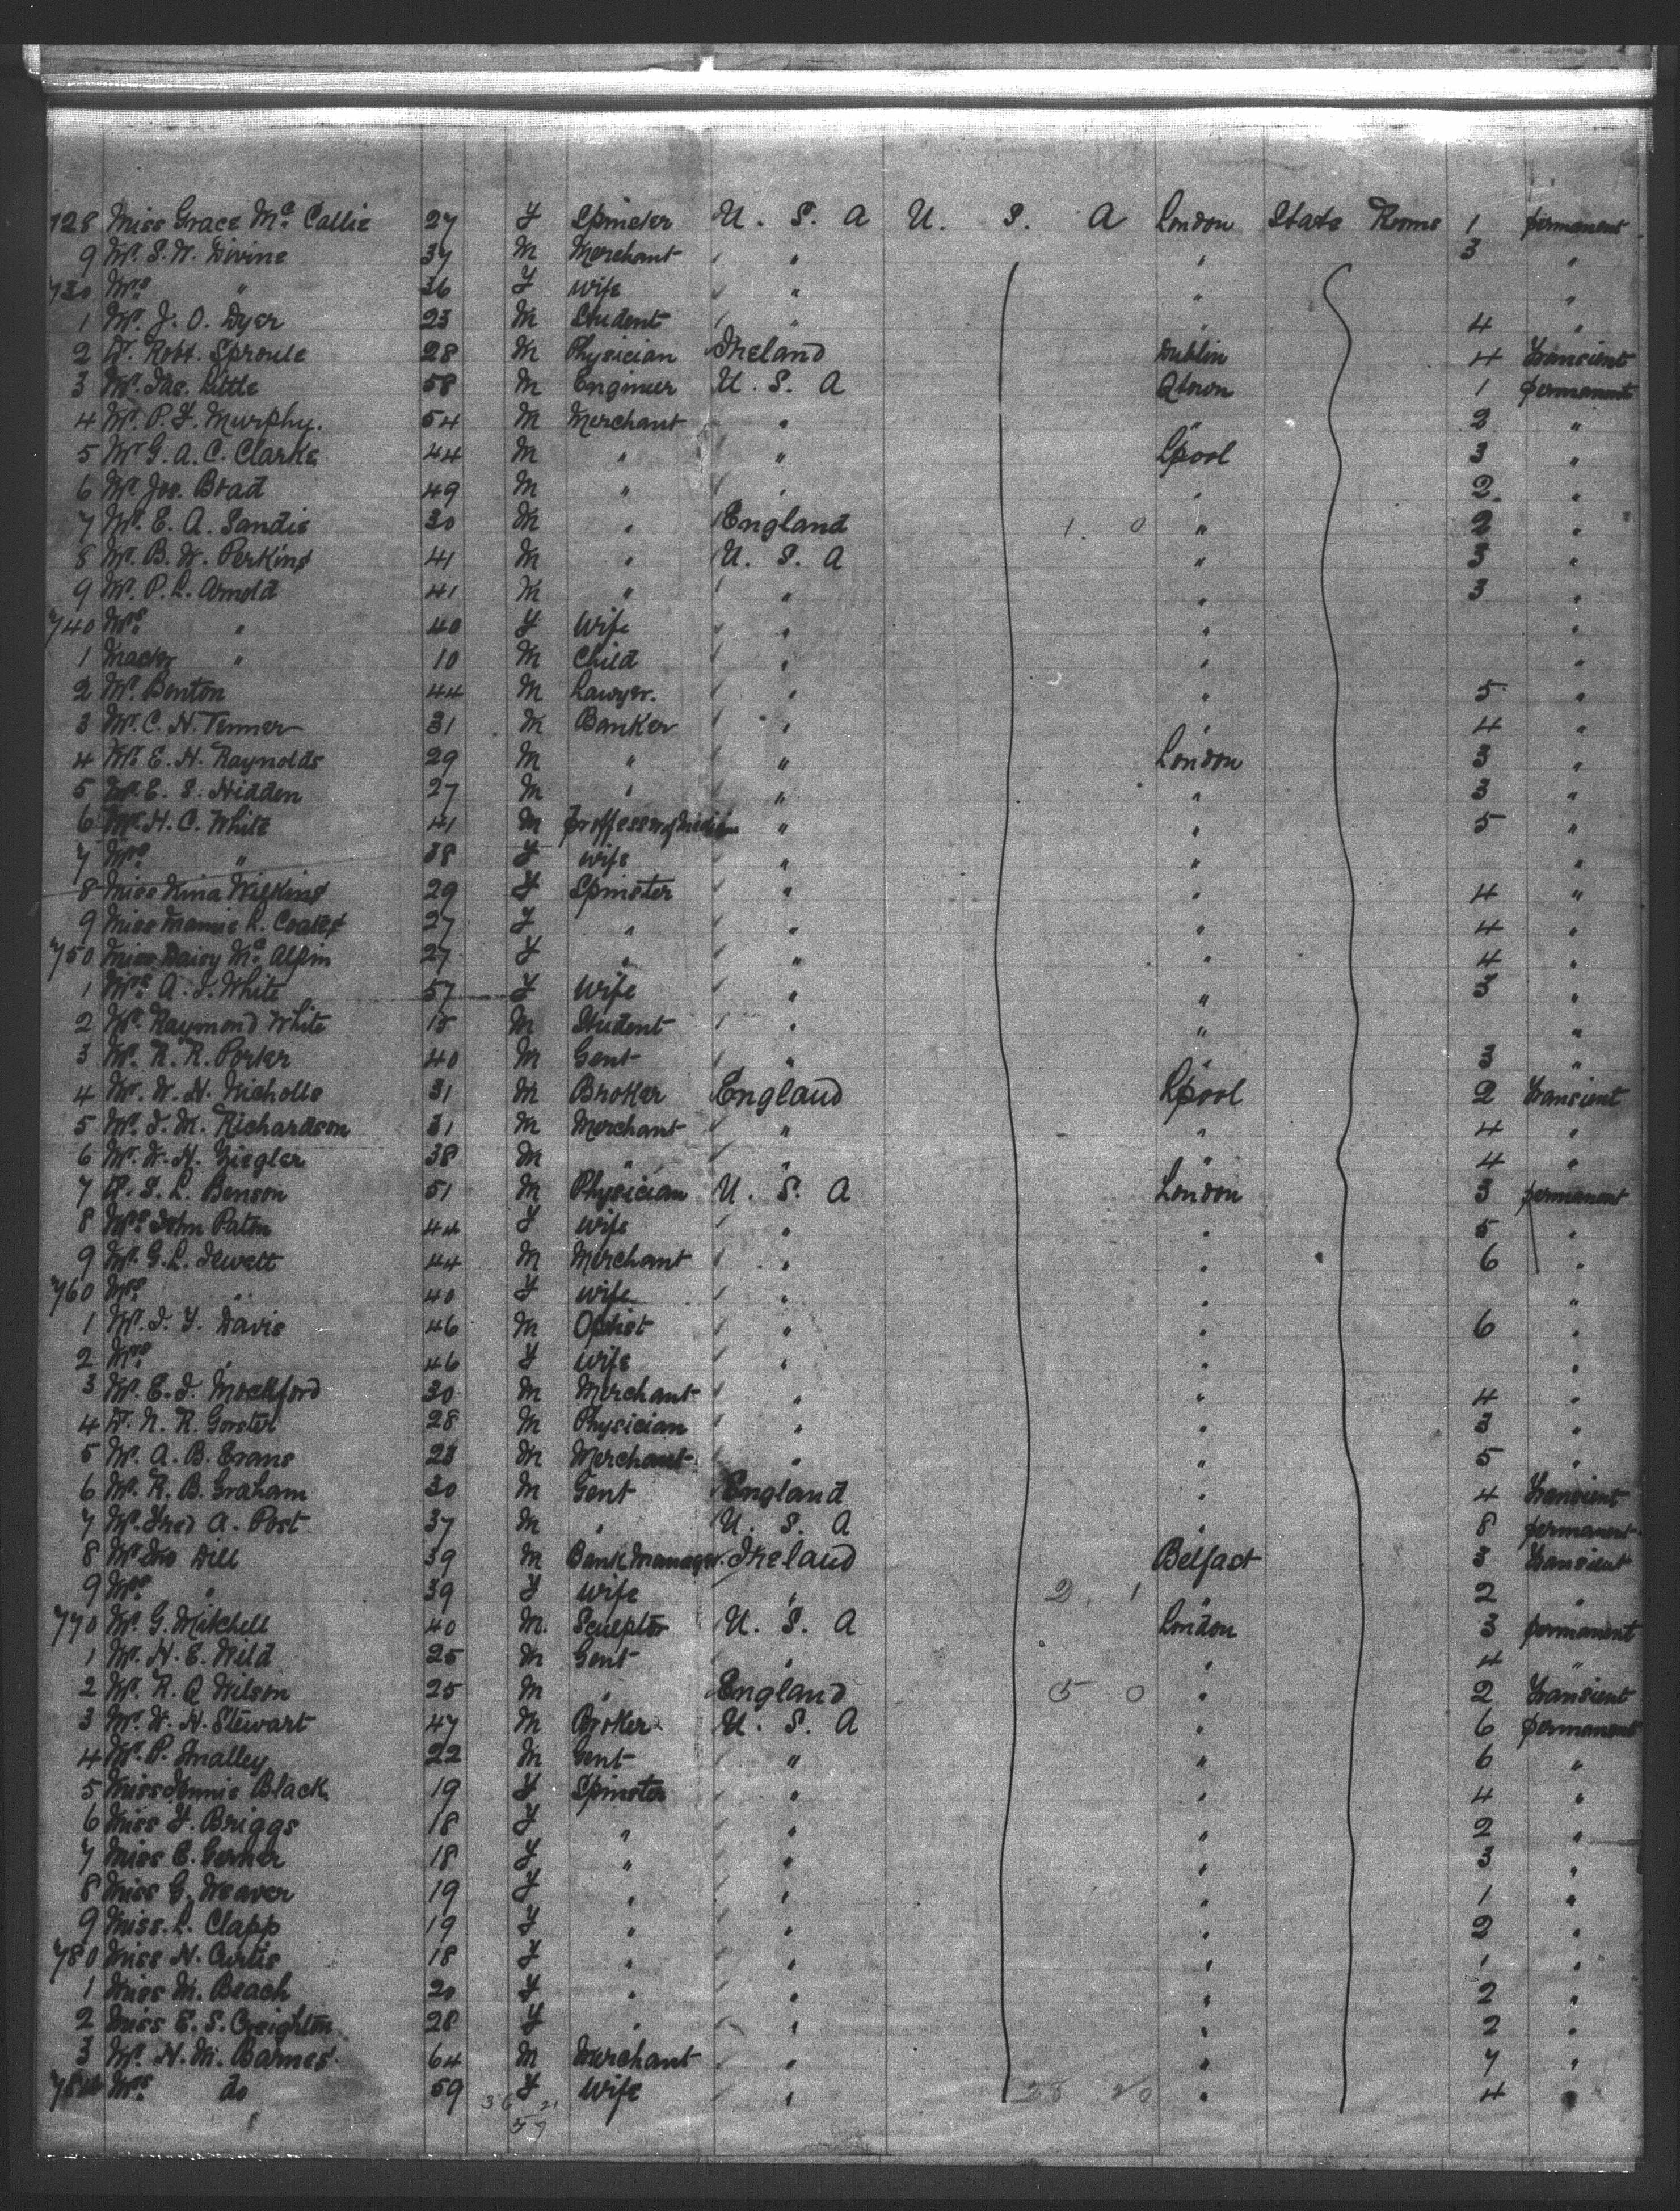 728 Miss Grace Mc. Callie 27 F Spinster U. S. A U. S. A London State Rooms 1 permanent
9 Mr. S. W. Divine 37 M Merchant " " 3 "
730 Mrs. " 36 F wife " " "
1 Mr. J. O. Dyer 23 M Student " " 4 "
2 Dr. Robt. Sproule 28 M Physician Ireland Dublin 4 transient
3 Mr. Jas. Little 58 M Engineer U. S. A Qtown 1 permanent
4 Mr. P. F. Murphy. 54 M Merchant " " 2 "
5 Mr G. A. C. Clarke 44 M " " Lpool 3 "
6 Mr Jos. Brad 49 M " " " 2 "
7 Mr. E. A. Sandie 30 M " England 1. 0 " 2 "
8 Mr. B. W. Perkins 41 M " U. S. A " 3 "
9 Mr. P. L. Arnold 41 M " " " 3 "
740 Mrs. " 40 F Wife " " "
1 " 10 M Child " " "
2 Mr. Benton 44 M Lawyer. " " 5 "
3 Mr. C. H. Tenner 31 M Banker " " 4 "
4 Mr. E. H. Raynolds 29 M " " London 3 "
5 Mr. E. S. Hidden 27 M " " " 3 "
6 Mr. H. C. White 41 M " " 5 "
7 Mrs. " 38 F wife " " "
8 Miss Nina Wilkins 29 F Spinster " " 4 "
9 Miss Mamie L. Coates 27 F " " " 4 "
750 Miss Daisy Mc. Alpin 27 F " " " 4 "
1 Mrs. A. J. White 57 F Wife " " 3 "
2 Mr. Raymond White 15 M Student " " "
3 Mr. R. R. Porter 40 M Gent " " 3 "
4 Mr. W. H. Nicholls 31 M Broker England Lpool 2 transient
5 Mr. J. M. Richardson 31 M Merchant " " 4 "
6 Mr. W. H. Ziegler 38 M " " " 4 "
7 Dr. S. L. Benson 51 M Physician U. S. A London 3 permanent
8 Mrs. John Paton 44 F wife " " 5 "
9 Mr. G. L. Jewett 44 M Merchant " " 6 "
760 Mrs. " 40 F wife " " "
1 Mr. J. F. Davis 46 M " " 6 "
2 Mrs. " 46 F wife " " "
3 Mr. E. J. Mockford 30 M Merchant " " 4 "
4 Dr. N. R. Gorster 28 M Physician " " 3 "
5 Mr. A. B. Evans 23 M Merchant " " 5 "
6 Mr. R. B. Graham 30 M Gent England " 4 transient
7 Mr. Fred A. Post 37 M " U. S. A " 8 permanent
8 Mr Jno Dill 39 M Bank Manager Ireland Belfast 3 transient
9 Mrs. " 39 F wife " 2. 1 " 2 "
770 Mr. G. Mitchell 40 M. Sculptor U. S. A London 3 permanent
1 Mr. H. E. Wild 25 M Gent " " 4 "
2 Mr. R. Q Wilson 25 M " England 5 0 " 2 transient
3 Mr. W. H. Stewart 47 M Broker U. S. A " 6 permanent
4 Mr. P. Smalley 22 M Gent " " 6 "
5 Miss Jennie Black 19 F Spinster " " 4 "
6 Miss F. Briggs 18 F " " " 2 "
7 Miss E. Gerner 18 F " " " 3 "
8 Miss G. Weaver 19 F " " " 1 "
9 Miss. L. Clapp 19 F " " " 2 "
780 Miss H. Curtis 18 F " " " 1 "
1 Miss M. Beach 20 F " " " 2 "
2 Miss E. S. Creighton 28 F " " " 2 "
3 Mr. H. M. Barnes 64 M Merchant " " 7 "
784 Mrs. do 59 F Wife " 28 20 " 4 "
36 21
57